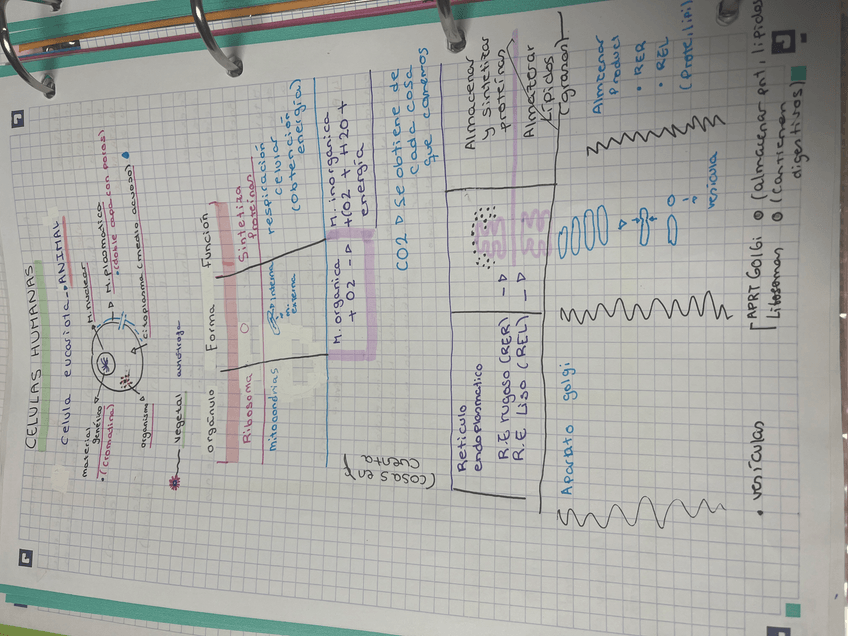 CELULAS HUMANAS
Celula eucariota -> ANIMAL
material
genético
(cromatina)
M. nuclear
M. plasmatica
(doble capa con poros)
citoplasma (medio acuoso)
organismo
vegetal
orgánulo Forma Función
Ribosoma Sintetiza
Proteínas
mitocondrias
interna
m. externa
respiración
celular
(obtención
energía)
(cosas en
cuenta
M. orgánica -> M. inorgánica
+ O2 + CO2 + H2O +
energía
CO2 -> Se obtiene de
cada cosa
que comemos
Reticulo
endoplasmatico
R.E rugoso (RER) ->
R.E Liso (REL) ->
Almacenar
y sintetizar
proteínas
Almacenar
Lípidos
(grasas)
Aparato golgi
vesícula
Almacenar
Product
• RER
• REL
(Prote, lipi)
• vesículas
APRT Golgi (almacenar prt, lipidos)
Lisosomas (contienen
digestivos)